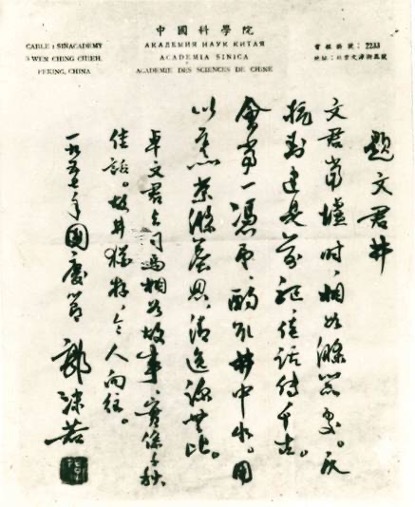 中國科學院
CABLE: SINACADEMY
3 WEN CHING CHIEH,
PEKING, CHINA
АКАДЕМИЯ НАУК КИТАЯ
ACADEMIA SINICA
ACADÉMIE DES SCIENCES DE CHINE
電報掛號:2233
地址:北京文津街三號
題文君井
文君當壚時,相如滌器處。反
抗封建是前驅,佳話傳千古。
會當一憑弔,酌取井中水。用
以烹茶滌塵思,清逸涼無比。
卓文君與司馬相如故事,實係千秋
佳話。故井猶存,令人向往。
一九五七年國慶節 郭沫若